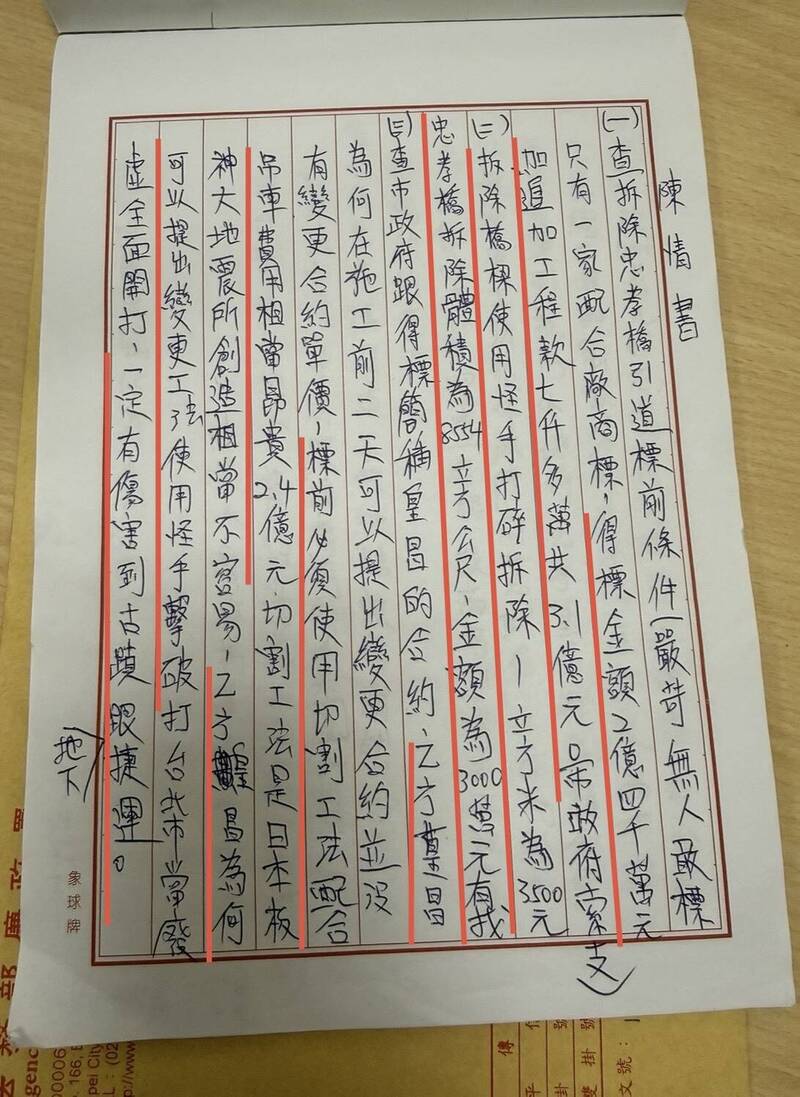 陳情書
(一)查拆除忠孝橋引道標前條件嚴苛無人敢標
只有一家配合廠商標,得標金額2億四千萬元
加追加工程款七仟多萬共3.1億元政府索支
(二)拆除橋樑使用怪手打碎拆除1立方米為3500元
忠孝橋拆除體積為8554立方公尺,金額為3000萬元有找
(三)查市政府跟得標簡稱皇昌的合約,乙方皇昌
為何在施工前二天可以提出變更合約並沒
有變更合約單價,標前必須使用切割工法配合
吊車費用相當昂貴2.4億元.切割工法是日本板
神大地震所創造相當不容易,乙方皇昌為何
可以提出變更工法使用怪手擊破打台北市當廢
虛全面開打,一定有傷害到古蹟跟捷運。
地下
象球牌
部廉政署
genc
00006
166, 
pei City
L:(02
http://www
傳
文號: